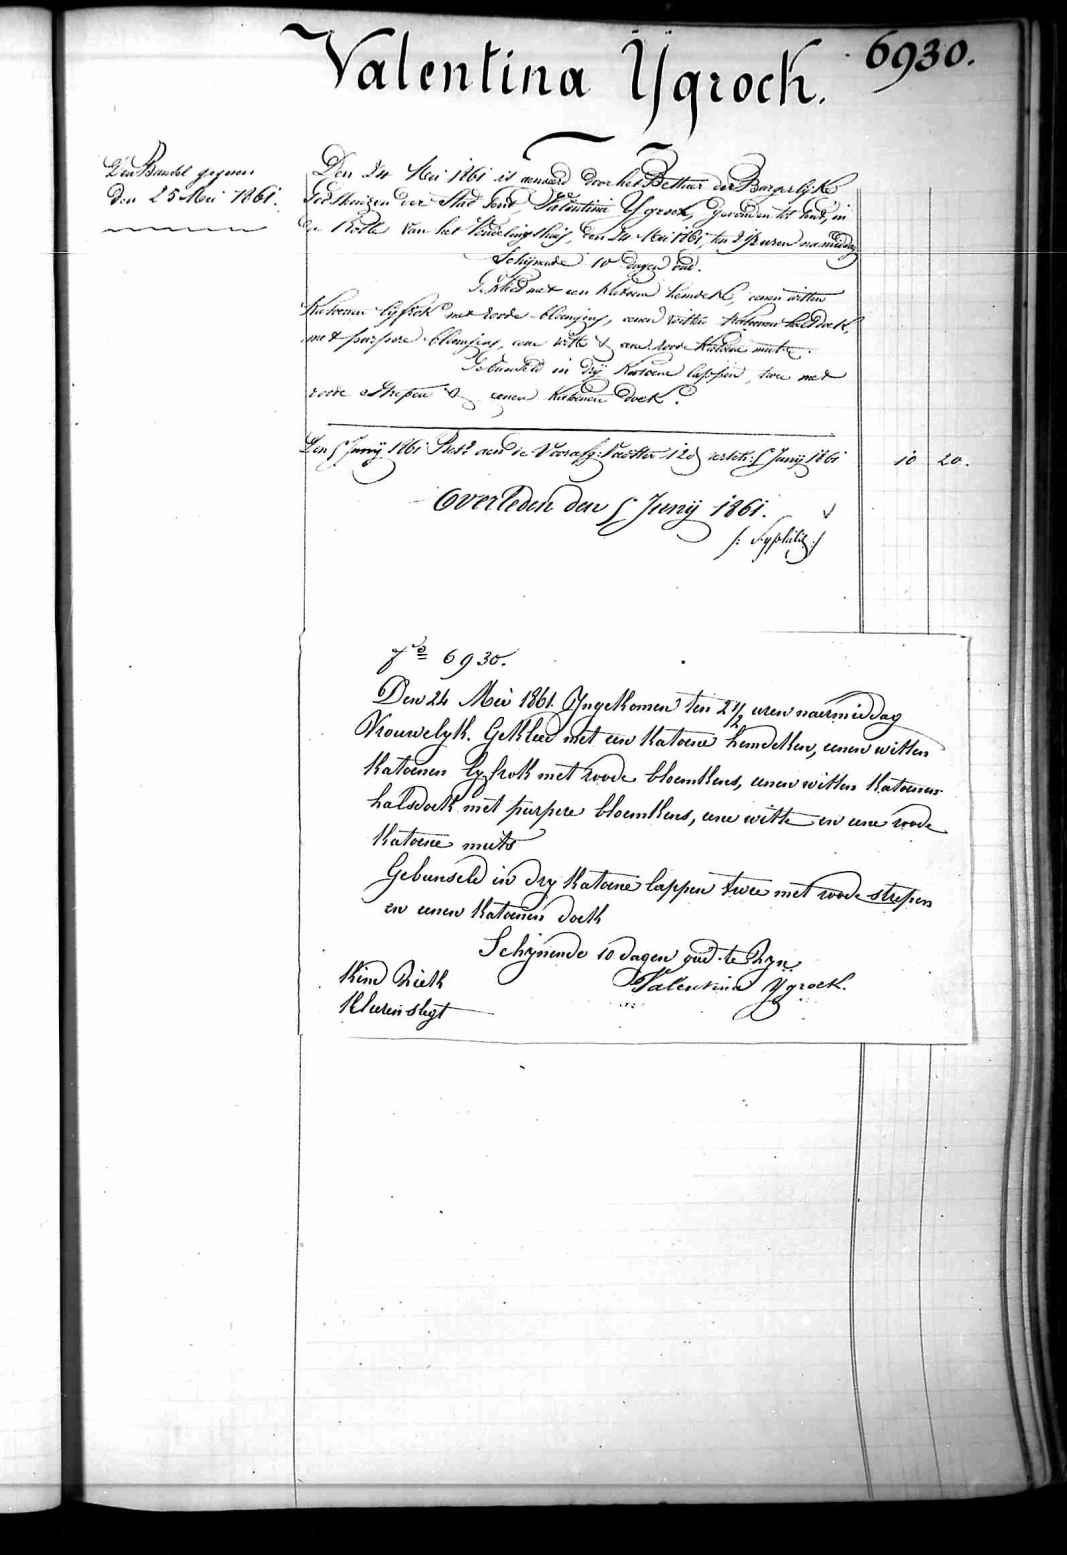 Valentina Ygrock. 6930.
Den 25 Mei 1861.
Den 24 Mei 1861 is aenveerd door het Bestuer der Burgerlyke
Godshuizen der Stad Gent, Valentina Ygrock, gevonden tot Gent, in
de Rolle van het Vondelingshuis, den 24 Mei 1861, ten 2½ uren namiddag
Schijnende 10 dagen oud.
Gekleed met een katoene hemdek, eenen witten
katoenen lijfrok met roode blomjens, eenen witten katoenen halsdoek
met purpere blomjens, eene witte & eene roode katoene muts.
Gebunseld in drij katoene lappen, twee met
roode strepen & eenen katoenen doek.
Den 5 Junij 1861 aen de 5 Junij 1861 10 20.
Overleden den 5 Junij 1861.
/: Syphilis :/
fº 6930.
Den 24 Mei 1861. Yngekomen ten 2 1/2 uren naermiddag
Vrouwelyk. Gekleed met een katoene hemdeken, eenen witten
katoenen lyfrok met roode bloemkens, eenen witten katoenen
halsdoek met purpere bloemkens, eene witte en eene roode
katoene muts
Gebunseld in dry katoene lappen twee met roode strepen
en eenen katoenen doek
Schynende 10 dagen oud te zyn
Kind ziek Valentina Ygrock.
Kleeren slegt